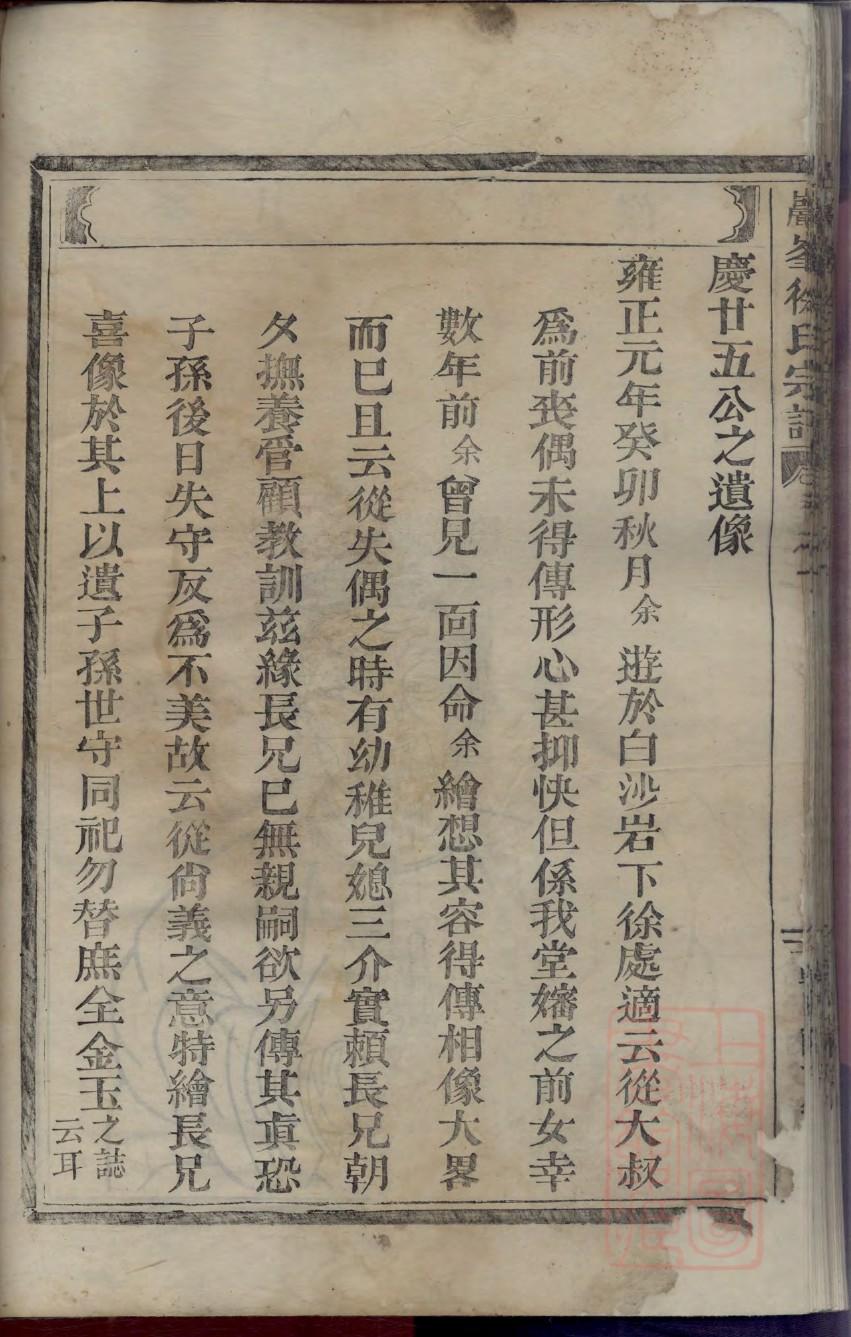 巖峯徐氏宗譜
慶廿五公之遺像
雍正元年癸卯秋月余遊於白沙岩下徐處適云從大叔
爲前喪偶未得傳形心甚抑怏但係我堂嬸之前女幸
數年前余曾見一面因命余繪想其容得傳相像大畧
而已且云從失偶之時有幼稚兒媳三介實賴長兄朝
夕撫養管顧教訓兹緣長兄已無親嗣欲另傳其眞恐
子孫後日失守反爲不美故云從尙義之意特繪長兄
喜像於其上以遺子孫世守同祀勿替庶全金玉之誌
云耳